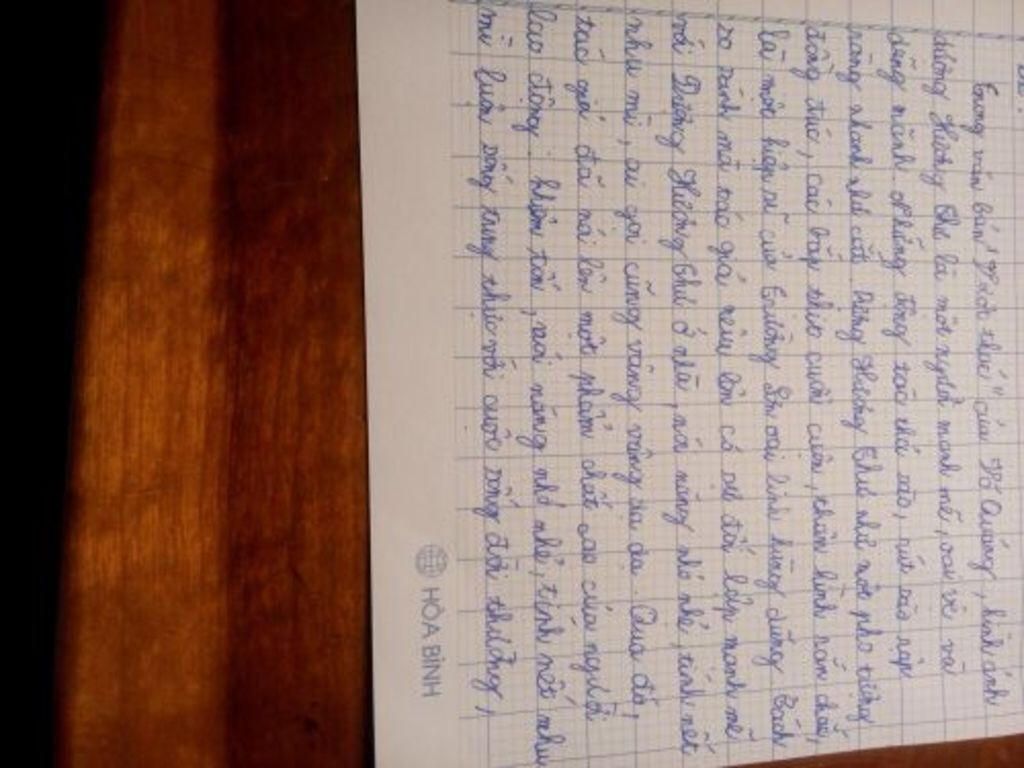 Trong văn bản "Vượt thác" của Võ Quảng, hình ảnh
dượng Hương Thư là một người mạnh mẽ, oai vệ và
dũng mãnh. Những động tác thả sào, rút sào rập
ràng nhanh như cắt. Dượng Hương Thư như một pho tượng
đồng đúc, các bắp thịt cuồn cuộn, thân hình rắn chắc,
là một hiệp sĩ của Trường Sơn oai linh hùng dũng. Cách
so sánh mà tác giả nêu lên có sự đối lập mạnh mẽ
với Dượng Hương Thư ở nhà, nói năng nhỏ nhẻ, tính nết
nhu mì, ai gọi cũng vâng vâng dạ dạ. Qua đó,
tác giả đã nói lên một phẩm chất cao của người
lao động: khiêm tốn, nói năng nhỏ nhẻ, tính nết nhu
mì luôn sống trung thực với cuộc sống đời thường,
HÒA BÌNH